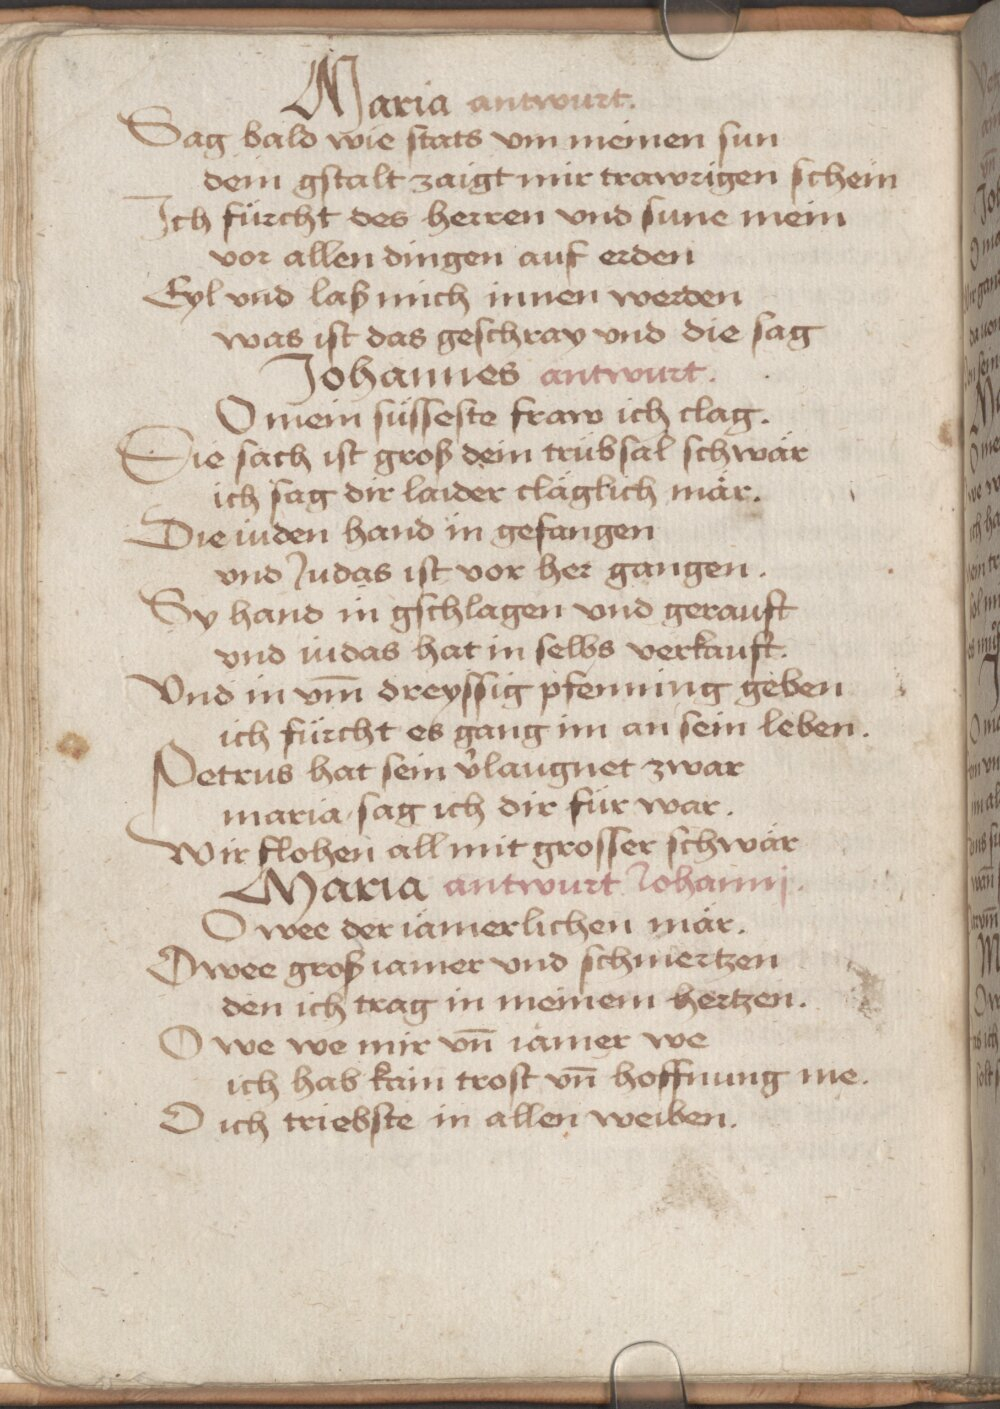 Maria antwurt.
Sag bald wie stats vm meinen sun
dein gstalt zaigt mir trawrigen schein
Ich fürcht des herren vnd sune mein
vor allen dingen auf erden
Eyl vnd laß mich innen werden
was ist das geschray vnd die sag
Johannes antwurt.
O mein süsseste fraw ich clag.
Die sach ist groß dein trübsal schwär
ich sag dir laider cläglich mär.
Die iuden hand in gefangen
vnd Judas ist vor her gangen.
Sy hand in gschlagen vnd gerauft
vnd iudas hat in selbs verkauft.
Vnd in vm̄ dreyssig pfenning geben
ich fürcht es gang im an sein leben.
Petrus hat sein v̓laugnet zwar
maria sag ich dir für war.
Wir flohen all mit grosser schwär
Maria antwurt Johanni.
O wee der iämerlichen mär.
O wee groß iamer vnd schmertzen
den ich trag in meinem hertzen.
O we we mir vn̄ iamer we
ich hab kain trost vn̄ hoffnung me.
O ich triebste in allen weiben.